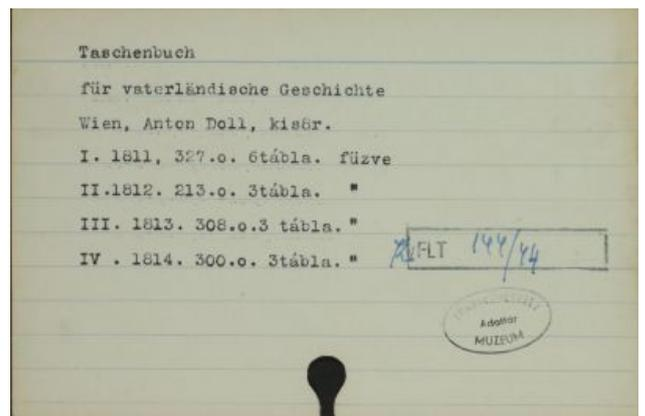 Taschenbuch
für vaterländische Geschichte
Wien, Anton Doll, kis8r.
I. 1811, 327.o. 6tábla. füzve
II.1812. 213.o. 3tábla. "
III. 1813. 308.o.3 tábla. "
IV . 1814. 300.o. 3tábla. "
FLT 144/44
Adattár
MUZEUM